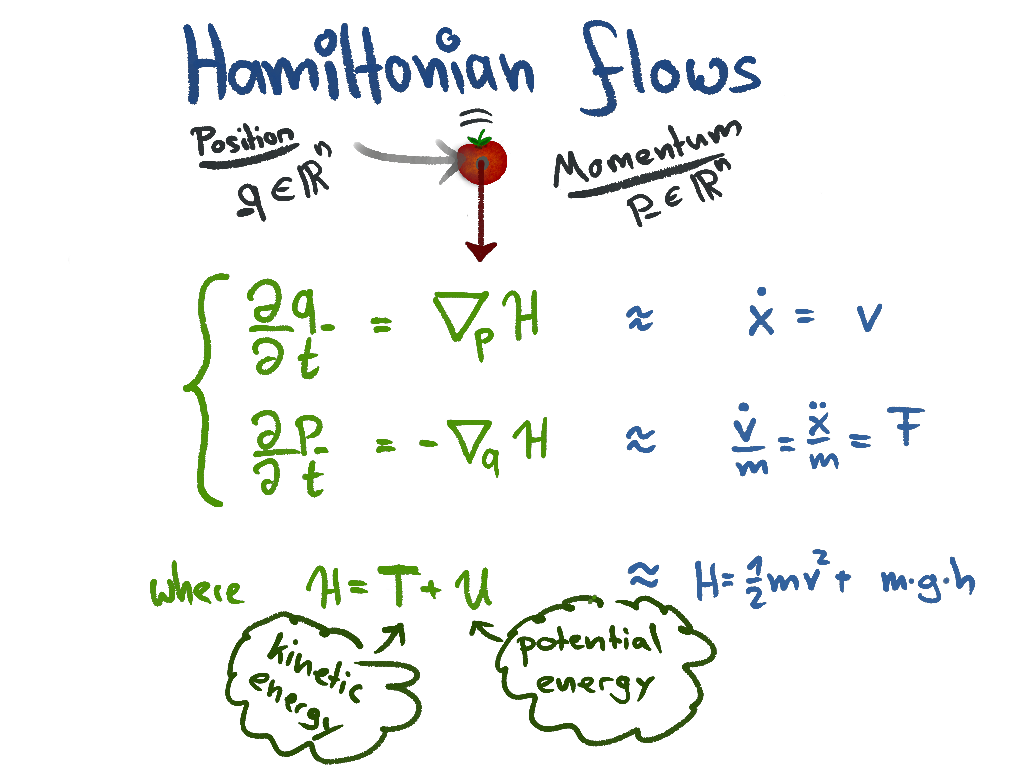 Hamiltonian flows
Position
q ∈ ℝⁿ
Momentum
p ∈ ℝⁿ
∂q/∂t = ∇ₚH ≈ ẋ = v
∂p/∂t = -∇_q H ≈ v̇/m = ẍ/m = F
where H = T + U ≈ H = ½mv² + m·g·h
kinetic
energy
potential
energy